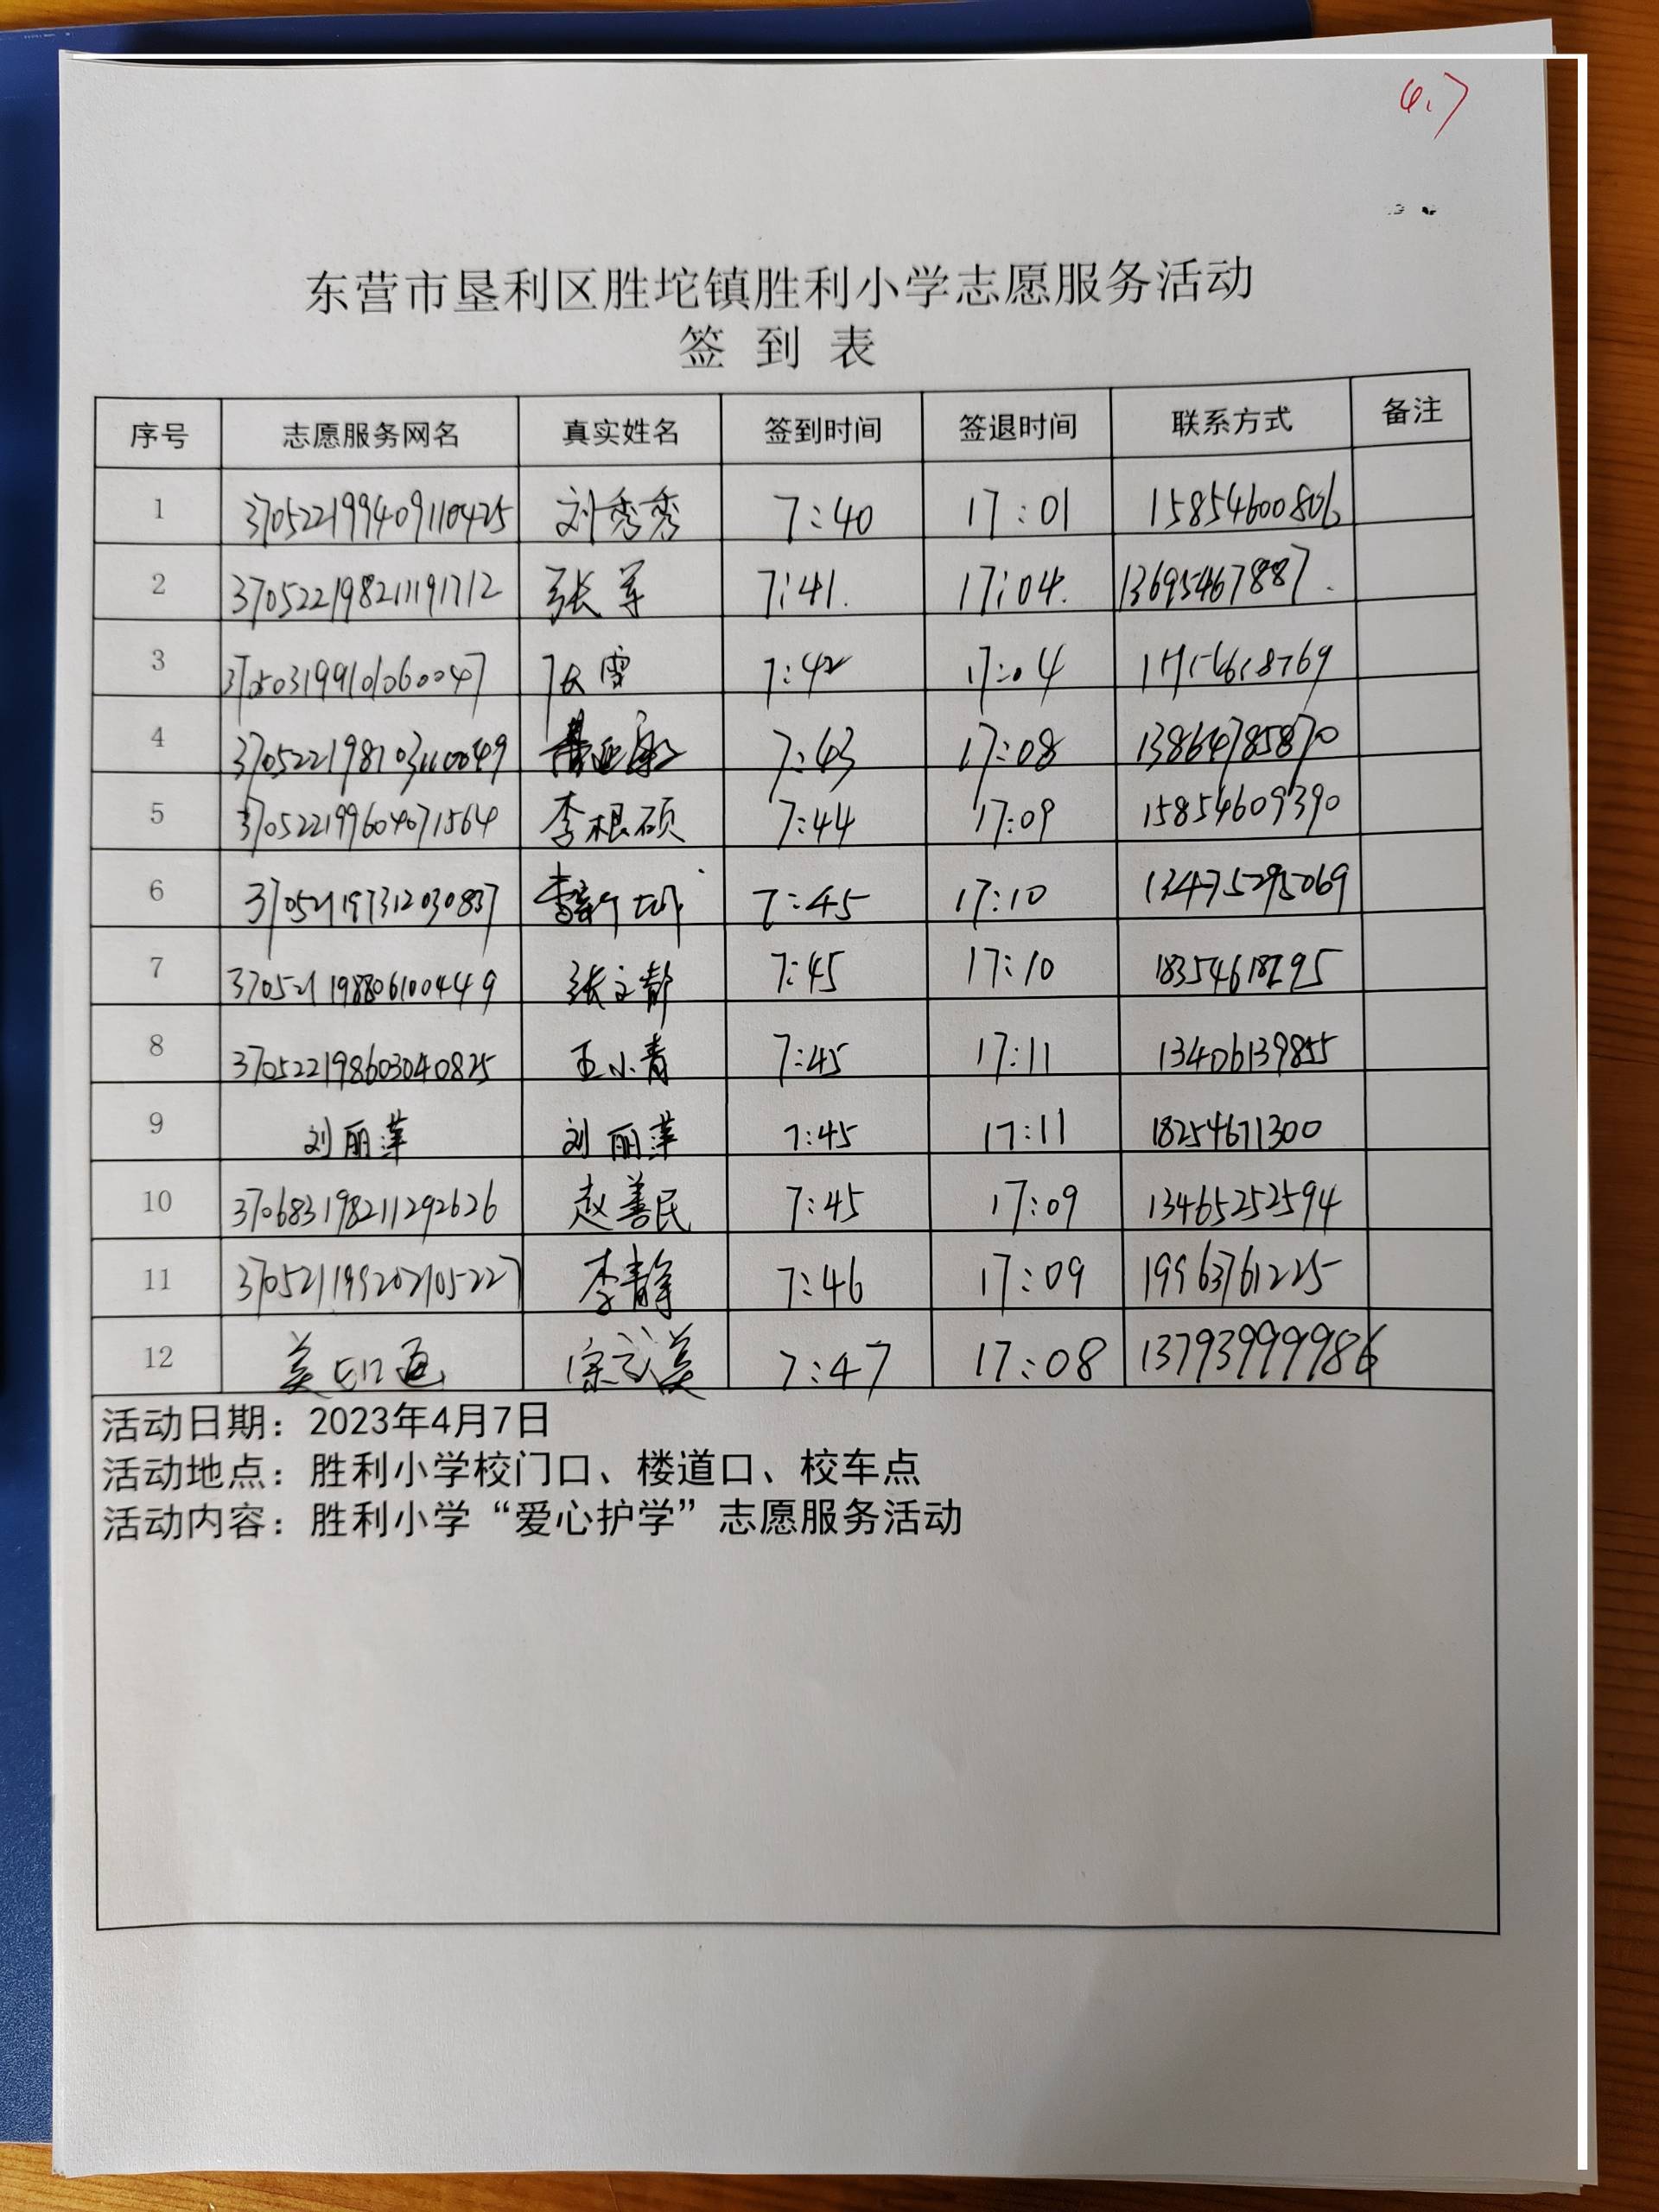 4.7
东营市垦利区胜坨镇胜利小学志愿服务活动
签 到 表
序号 志愿服务网名 真实姓名 签到时间 签退时间 联系方式 备注
1 370522199409110425 刘秀秀 7:40 17:01 15854600806
2 370522198211191712 张军 7:41. 17:04. 13695467887.
3 370503199101060047 张雪 7:42 17:04
4 7:43 17:08 13864785870
5 370522199604071564 李根硕 7:44 17:09 15854609390
6 370521197312030837 7:45 17:10 13475295069
7 370521198806100449 张文静 7:45 17:10 18354618295
8 370522198603040825 王小青 7:45 17:11 13406139855
9 刘丽萍 刘丽萍 7:45 17:11 18254671300
10 370683198211292626 赵善民 7:45 17:09 13465252594
11 370521199202105227 李静 7:46 17:09 19963761225
12 7:47 17:08 13793999986
活动日期：2023年4月7日
活动地点：胜利小学校门口、楼道口、校车点
活动内容：胜利小学“爱心护学”志愿服务活动